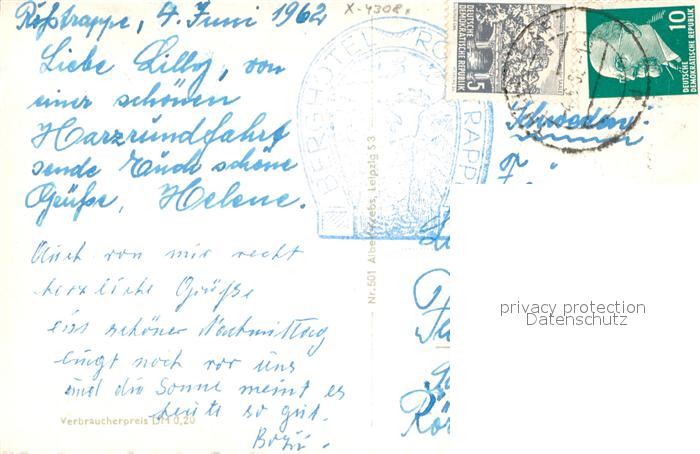 Roßtrappe, 4. Juni 1962
X-4308
Liebe Lilly, von
einer schönen
Harzrundfahrt
sende Euch schöne
Grüße, Helene.
Auch von mir recht
herzliche Grüße
ein schöner Nachmittag
liegt noch vor uns
und die Sonne meint es
heute so gut.
Verbraucherpreis DM 0,20
Nr. 501 Albert Krebs, Leipzig S 3
BERGHOTEL ROSSTRAPPE
DEUTSCHE DEMOKRATISCHE REPUBLIK
15
10
DEUTSCHE DEMOKRATISCHE REPUBLIK
Schweden
privacy protection
Datenschutz